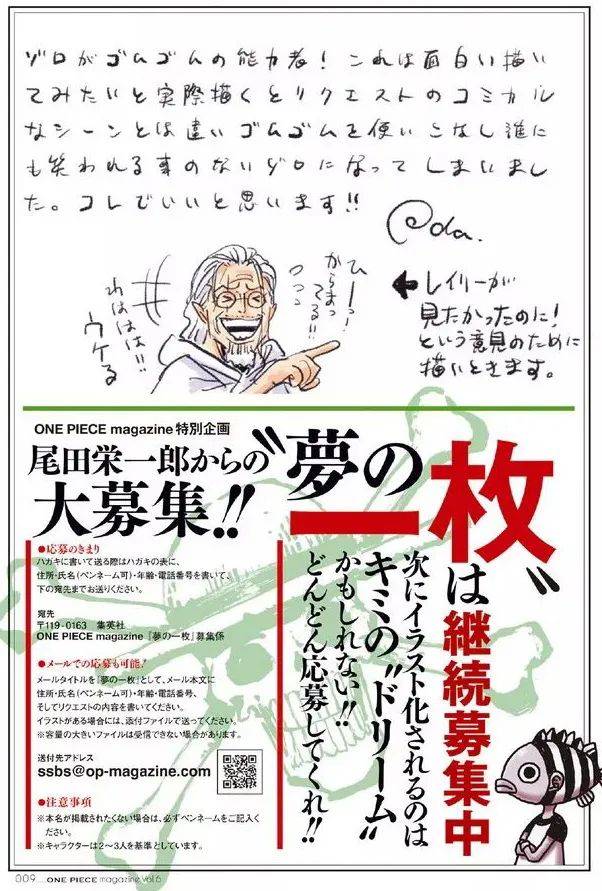 ゾロがゴムゴムの能力者! これは面白い描い
てみたいと実際描くとリクエストのコミカル
なシーンとは違いゴムゴムを使いこなし誰に
も笑われる事のないゾロになってしまいまし
た。コレでいいと思います!!
Oda.
ひーっ!
からまっ
てる!!
つつつ
わははは!!
ウケる
←レイリーが
見たかったのに!
という意見のために
描いときます。
ONE PIECE magazine 特別企画
尾田栄一郎からの
大募集!!
〝夢の
一枚〟
は継続募集中
次にイラスト化されるのは
キミの〝ドリーム〟
かもしれない!!
どんどん応募してくれ!!
●応募のきまり
ハガキに書いて送る際はハガキの表に、
住所・氏名(ペンネーム可)・年齢・電話番号を書いて、
下の宛先までお送りください。
宛先
〒119-0163 集英社
ONE PIECE magazine 『夢の一枚』募集係
●メールでの応募も可能!
メールタイトルを『夢の一枚』として、メール本文に
住所・氏名(ペンネーム可)・年齢・電話番号、
そしてリクエストの内容を書いてください。
イラストがある場合には、添付ファイルで送ってください。
※容量の大きいファイルは受信できない場合があります。
送付先アドレス
ssbs@op-magazine.com
●注意事項
※本名が掲載されたくない場合は、必ずペンネームをご記入く
ださい。
※キャラクターは2〜3人を基準としています。
009 ONE PIECE magazine Vol.6